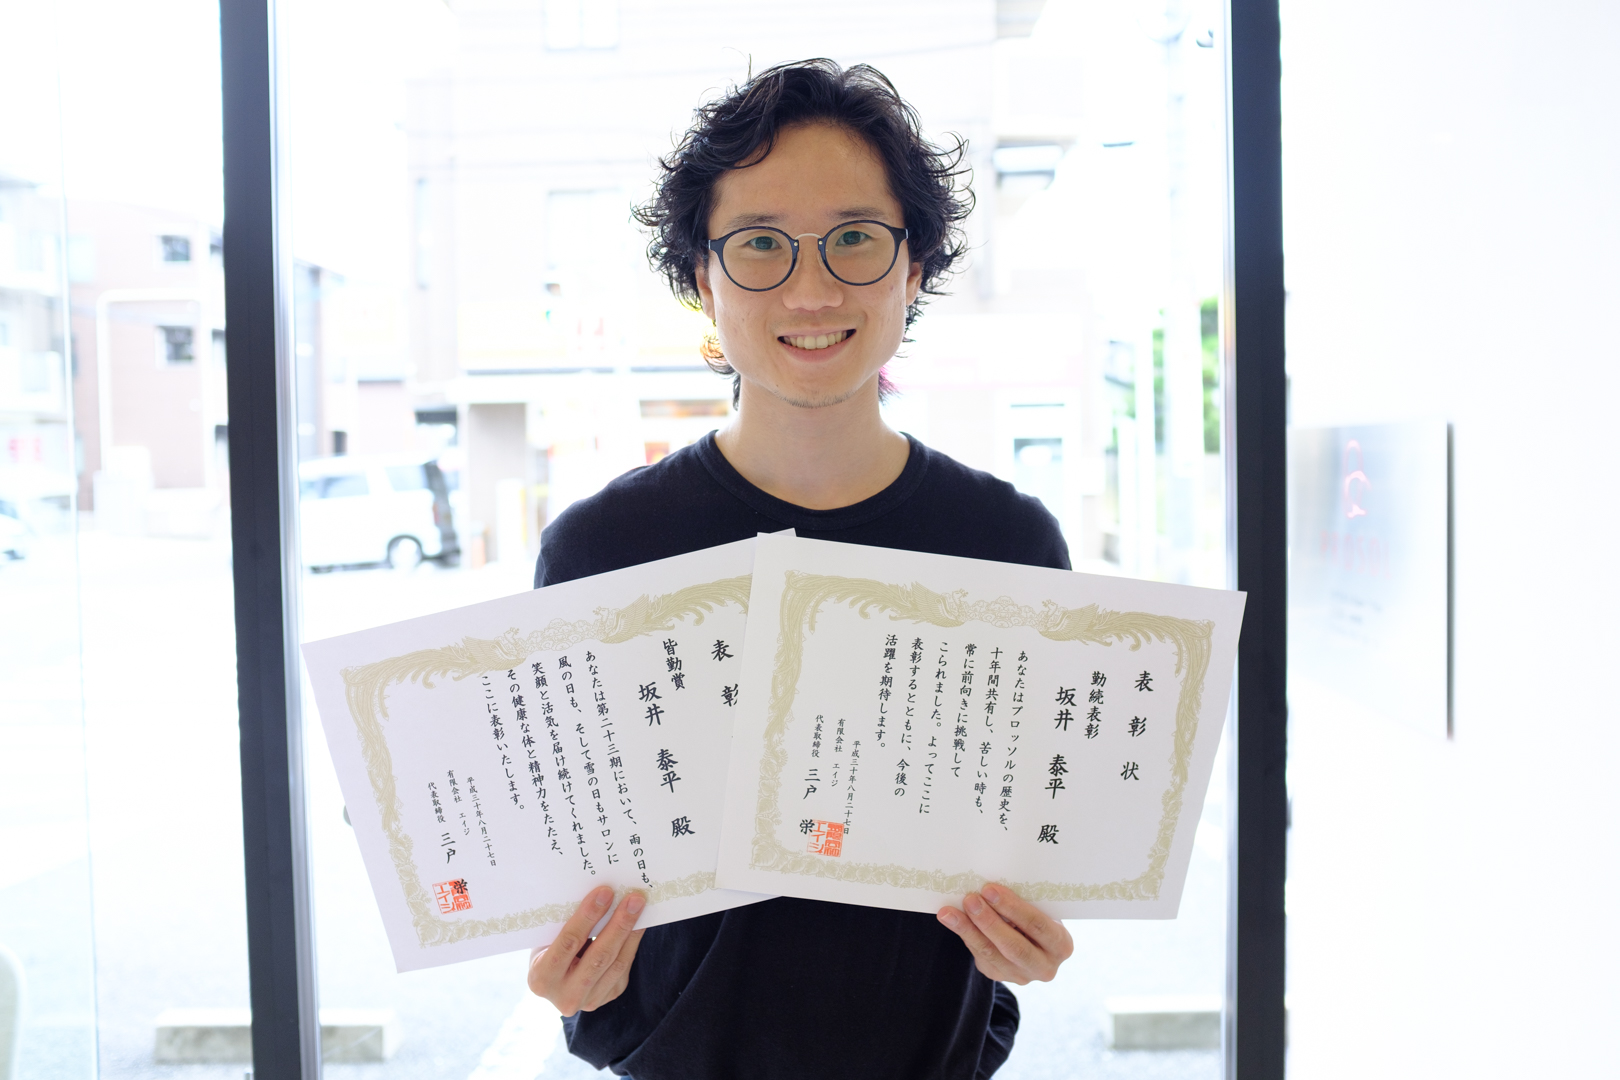 表彰状
勤続表彰
坂井 泰平 殿
あなたはブロッソルの歴史を、
十年間共有し、苦しい時も、
常に前向きに挑戦して
こられました。よってここに
表彰するとともに、今後の
活躍を期待します。
平成三十年八月二十七日
有限会社 エイジ
代表取締役 三戸 栄
表彰
皆勤賞
坂井 泰平 殿
あなたは第二十三期において、雨の日も、
風の日も、そして雪の日もサロンに
笑顔と活気を届け続けてくれました。
その健康な体と精神力をたたえ、
ここに表彰いたします。
平成三十年八月二十七日
有限会社 エイジ
代表取締役 三戸 栄